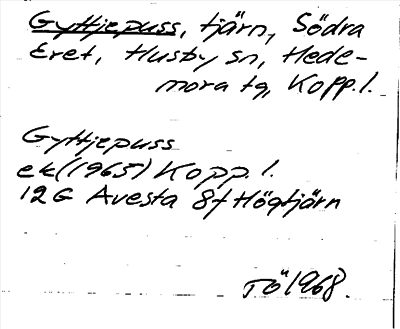 Gyttjepuss, tjärn, Södra
Eret, Husby sn, Hede-
mora tg, Kopp. l.
Gyttjepuss
ek (1965) Kopp. l.
12G Avesta 8f Högtjärn
TÖ 1968.